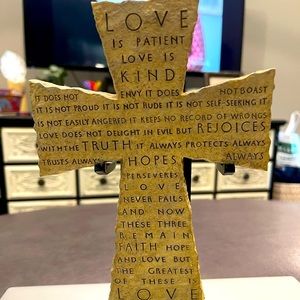 LOVE
IS PATIENT
LOVE IS
KIND
IT DOES NOT ENVY IT DOES NOT BOAST
IT IS NOT PROUD IT IS NOT RUDE IT IS NOT SELF-SEEKING IT
IS NOT EASILY ANGERED IT KEEPS NO RECORD OF WRONGS
LOVE DOES NOT DELIGHT IN EVIL BUT REJOICES
WITH THE TRUTH IT ALWAYS PROTECTS ALWAYS
TRUSTS ALWAYS HOPES ALWAYS
PERSEVERES
LOVE
NEVER FAILS
AND NOW
THESE THREE
REMAIN
FAITH HOPE
AND LOVE BUT
THE GREATEST
OF THESE IS
LOVE